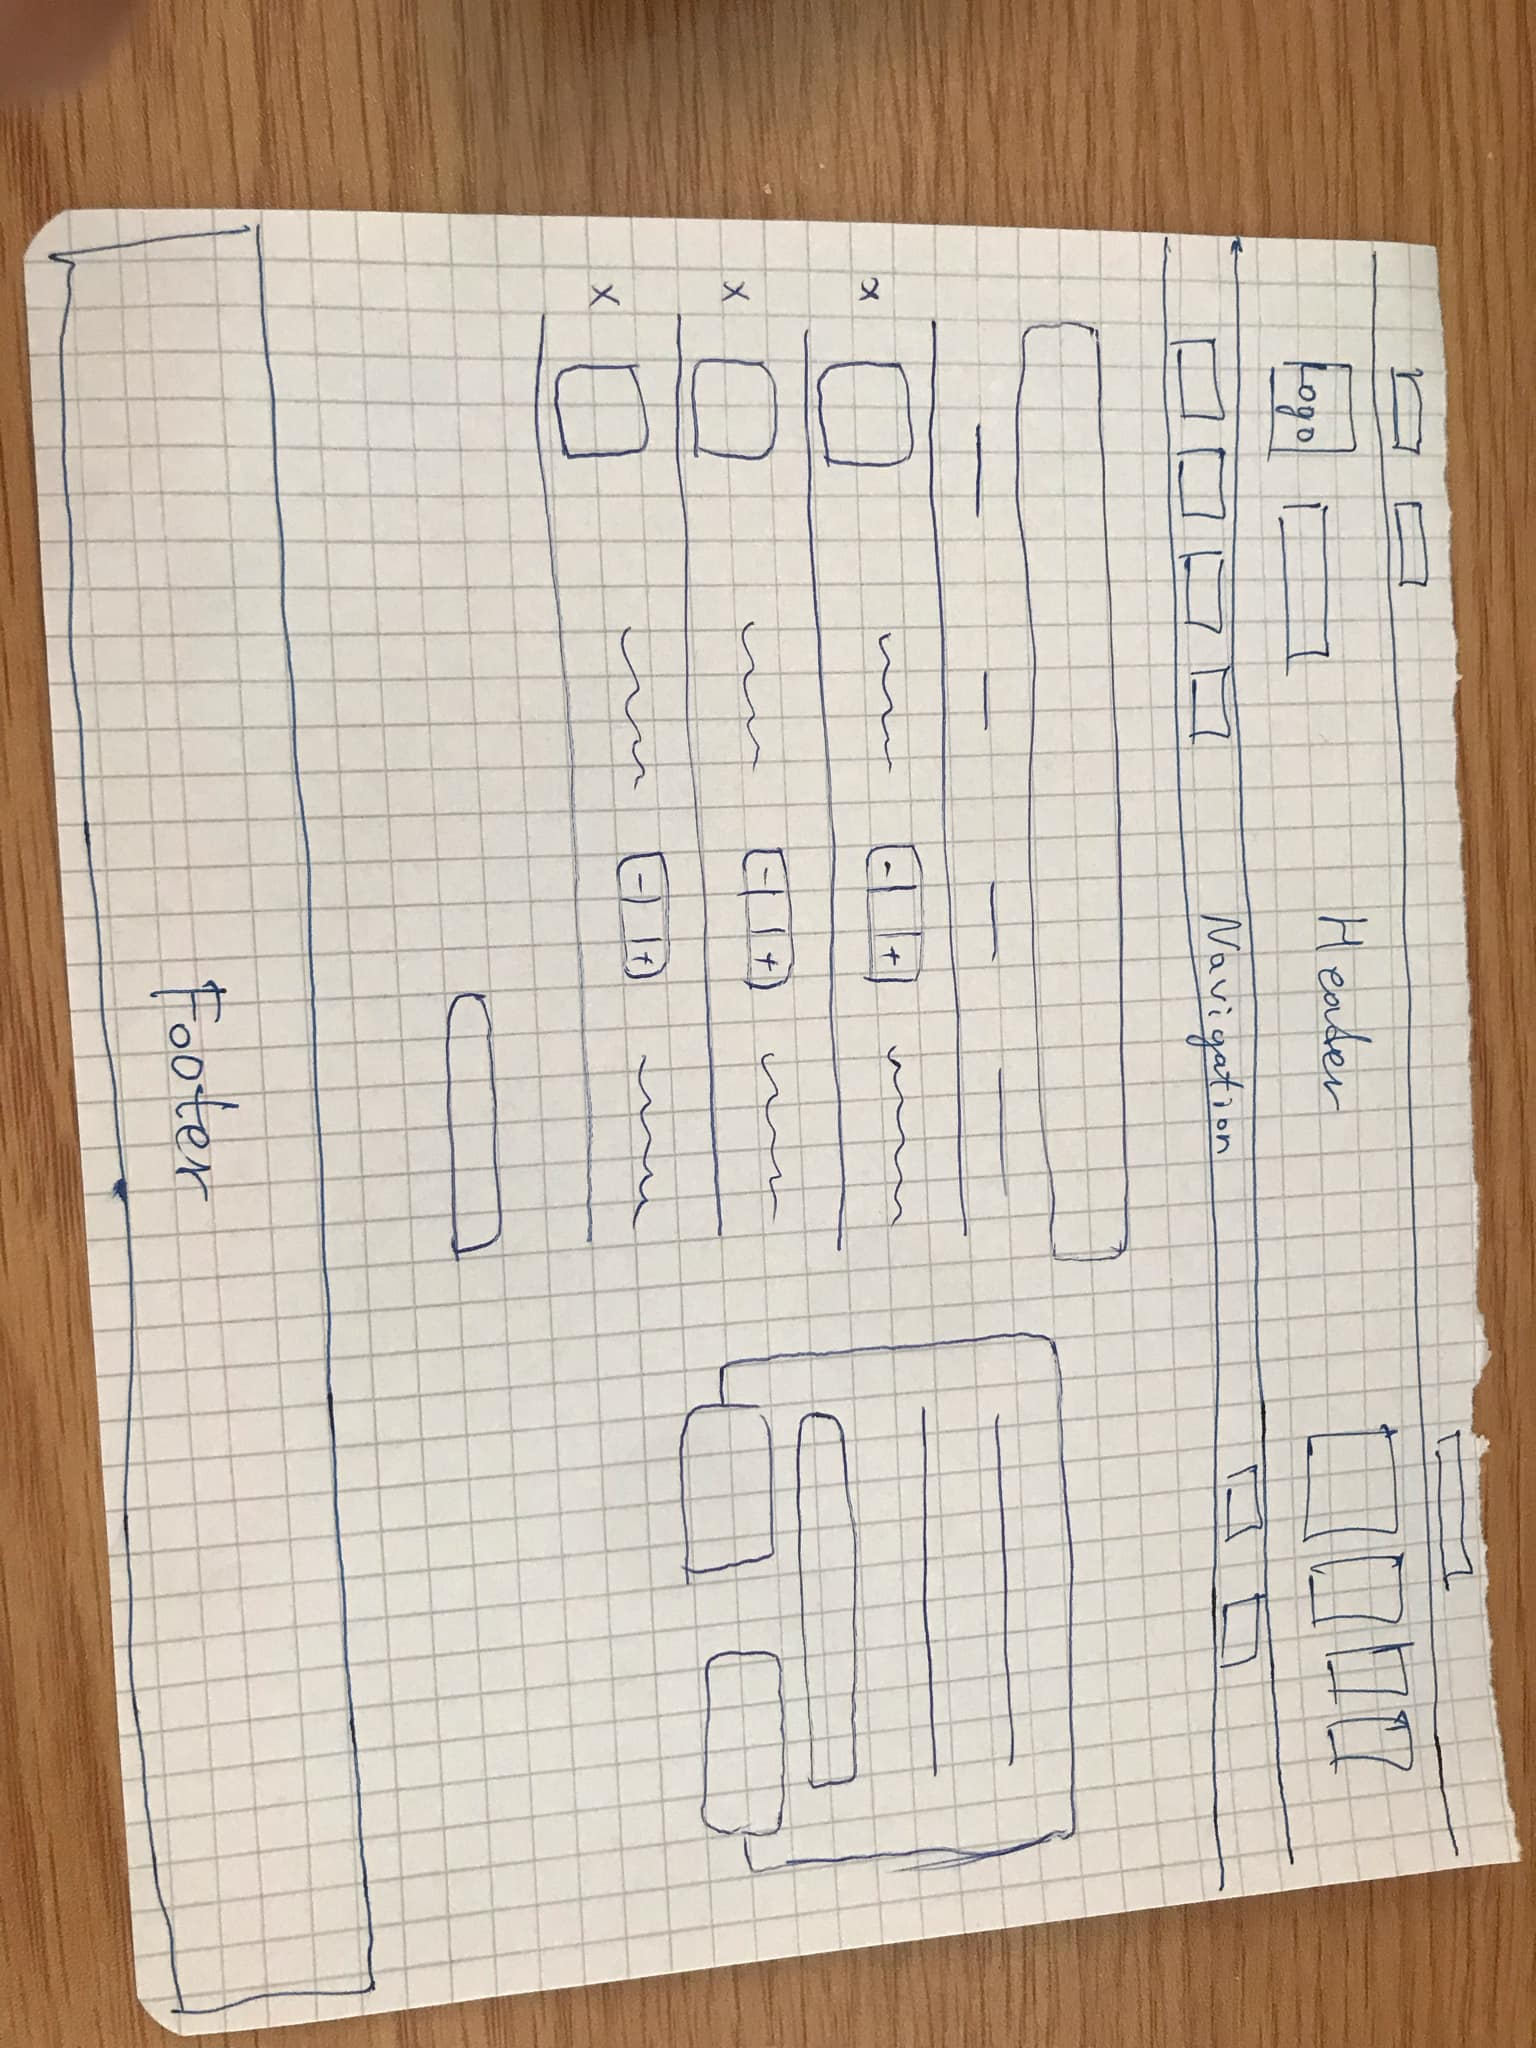 Logo
Header
Navigation
x
- +
x
- +
x
- +
Footer